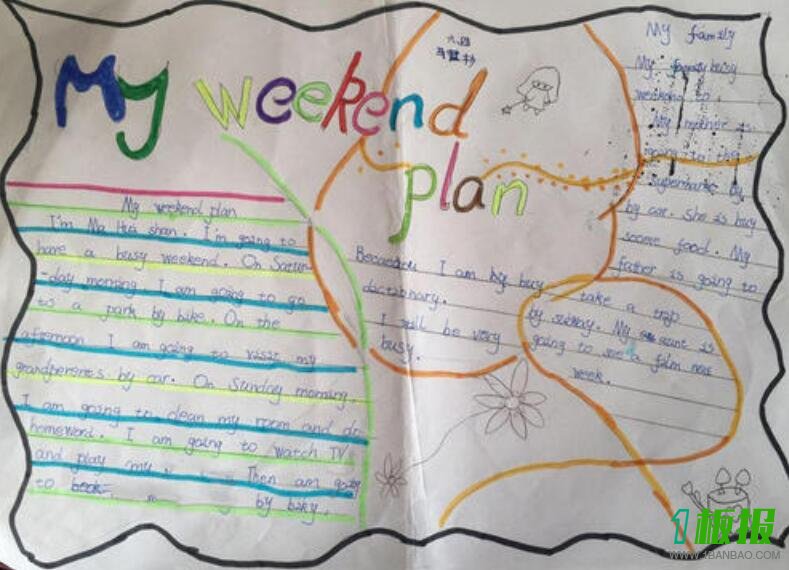 My weekend
plan
My weekend plan
I'm Ma Hua shan. I'm going to
have a busy weekend. On Satur
-day morning, I am going to go
to a park by bike. On the
afternoon I am going to visit my
grandperents by car. On Sunday morning,
I am going to clean my room and do
homeword. I am going to watch TV
and play my Then am going
to by
I am buy
dactionary.
I will be very
busy.
My family
My busy
weekend to
My mother is
going to the
supermarket by
by car. She is buy
soome food. My
father is going to
take a trip
by subway. My aunt is
going to see a film nex
week.
1板报
WWW.1BANBAO.COM